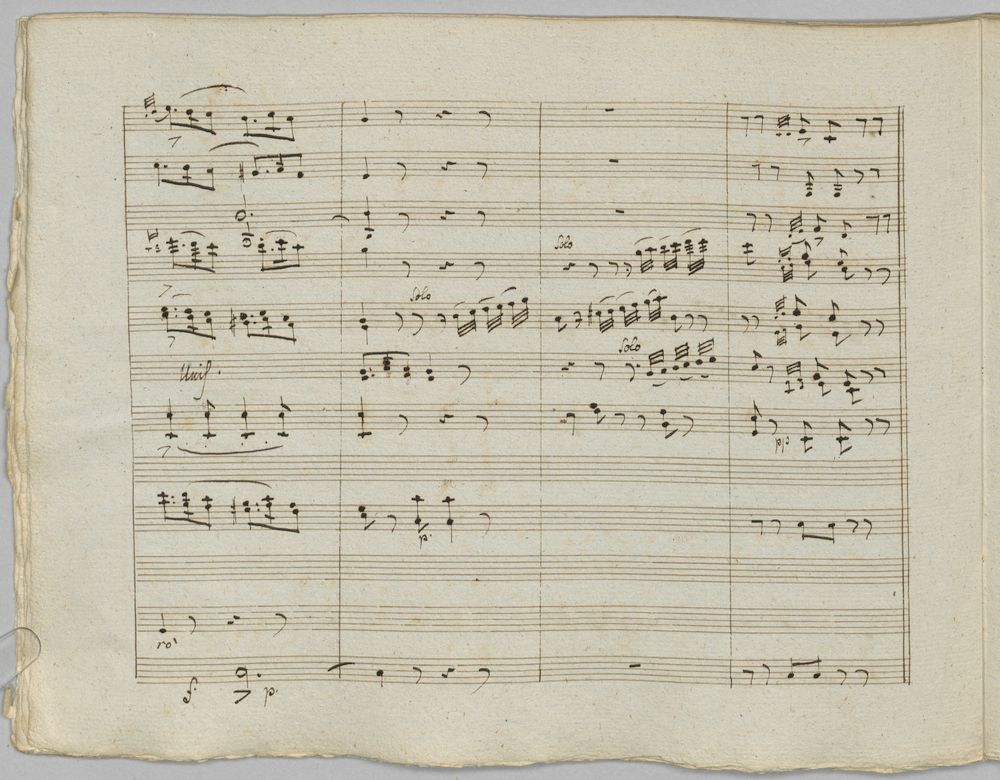 Solo
Solo
Solo
Unis.
pp
p.
ro'
f. p.